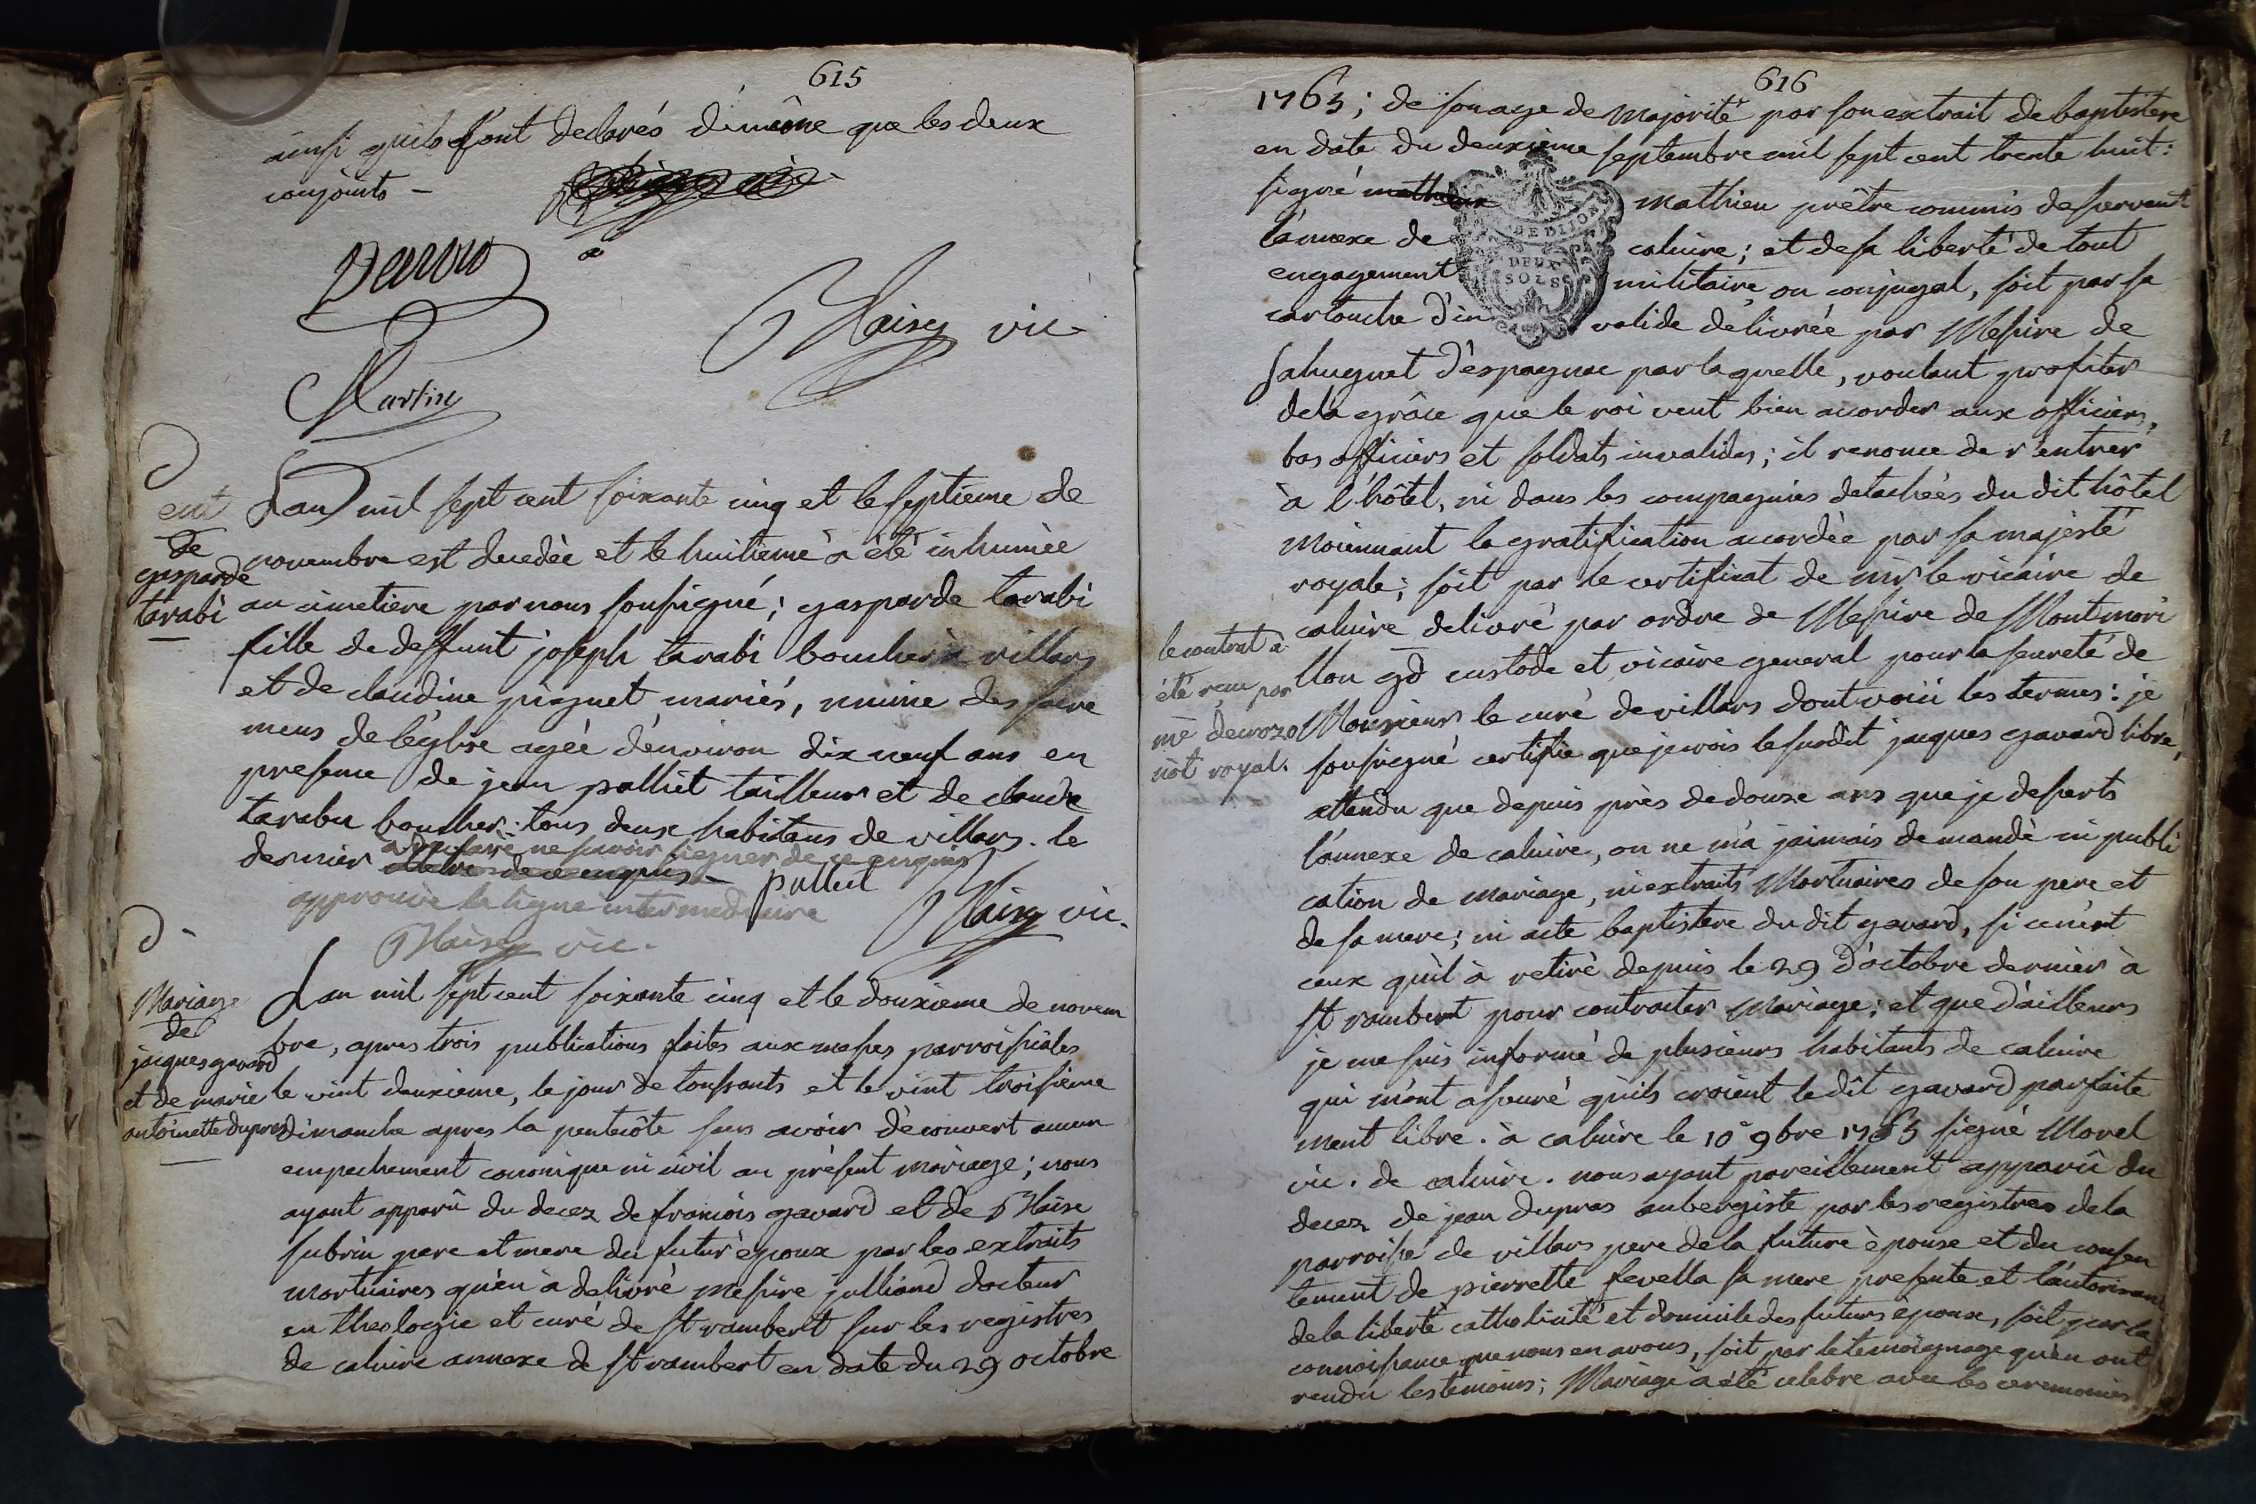 615
ainsi qu'ils s'ont declarés de même que les deux
conjoints –
Martin
Blaisy vic
Ent
de
gasparde
tarabi
L'an mil sept cent soixante cinq et le septieme de
novembre est decedée et le huitieme à été inhumée
au cimetiere par nous soussigné; gasparde tarabi
fille de deffunt joseph tarabi boucher à villars
et de claudine piguet mariés, munie des sacre
mens de l'église agée d'environ dix neuf ans en
presence de jean polliet tailleur et de claude
tarabi boucher: tous deux habitans de villars. le
à declaré ne savoir signer de ce enquis
dernier de ce enquis –
polliet
Blaisy vic.
approuvé la ligne intermediaire
Blaisy vic.
Mariage
de
jacques gavard
et de marie
antoinette dupras
L'an mil sept cent soixante cinq et le douxieme de novem
bre, apres trois publications faites aux messes parroissiales
le vint deuxieme, le jour de toussants et le vint troisieme
dimanche apres la pentecôte sans avoir découvert aucun
empechement canonique ni civil au présent mariage; nous
ayant apparû du decez de francois gavard et de Blaise
subrin pere et mere du futur époux par les extraits
mortuaires qu'en à delivré messire julliand docteur
en theologie et curé de st rambert sur les registres
de caluire annexe de st rambert en date du 29 octobre
616
1765; de son age de majorité par son extrait de baptistere
en date du deuxieme septembre mil sept cent trente huit:
signé mathieu mathieu prêtre commis desservant
l'annexe de caluire; et de sa liberté de tout
engagement militaire, ou conjugal, soit par sa
cartouche d'in valide delivrée par Messire de
Sahuguet d'éspagnac par laquelle, voulant profiter
de la grâce que le roi veut bien acorder aux officiers,
bas officiers et soldats invalides; il renonce de r'entrer
à l'hôtel, ni dans les compagnies detachées du dit hôtel
moiennant la gratification acordée par sa majesté
royale; soit par le certificat de mr le vicaire de
caluire delivré par ordre de Messire de Montmori
llon gd custode et vicaire general pour la seureté de
Monsieur le curé de villars dont voici les termes: je
soussigné certifie que je crois le susdit jacques gavard libre,
attendu que depuis près de douze ans que je desserts
l'annexe de caluire, on ne m'a jaimais demandé ni publi
cation de mariage, ni extraits Mortuaires de son pere et
de sa mere; ni acte baptistere du dit gavard, si ce n'est
ceux qu'il à retiré depuis le 29 d'octobre dernier à
st rambert pour contracter Mariage; et que d'ailleurs
je me suis informé de plusieurs habitants de caluire
qui m'ont assuré qu'ils croient le dit gavard parfaite
ment libre. à caluire le 10e 9bre 1765 signé Morel
vic. de caluire. nous ayant pareillement apparû du
decez de jean dupras aubergiste par les registres de la
parroisse de villars pere de la future épouse et du consen
tement de pierrette fevella sa mere presente et l'autorisant
de la liberté catholicité et domicile des futurs époux, soit par la
connoissance que nous en avons, soit par le témoignage qu'en ont
rendu les temoins; Mariage à été célebré avec les ceremonies
le contrat à
été reçu par
me
not royal.
DE DIJON
DEUX
SOLS